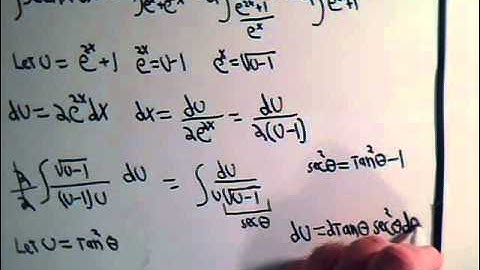 ∫ e^x+e^-x ∫ e^2x+1/e^x ∫ e^2x+1
Let U = e^2x+1 e^2x=U-1 e^x=√U-1
dU = 2e^2x dx dx = dU/2e^2x = dU/2(U-1)
2/2 ∫ √U-1/(U-1)U dU = ∫ dU/U√U-1 sec²θ=Tan²θ-1
secθ
Let U = Tan²θ dU=2Tanθ sec²θdθ